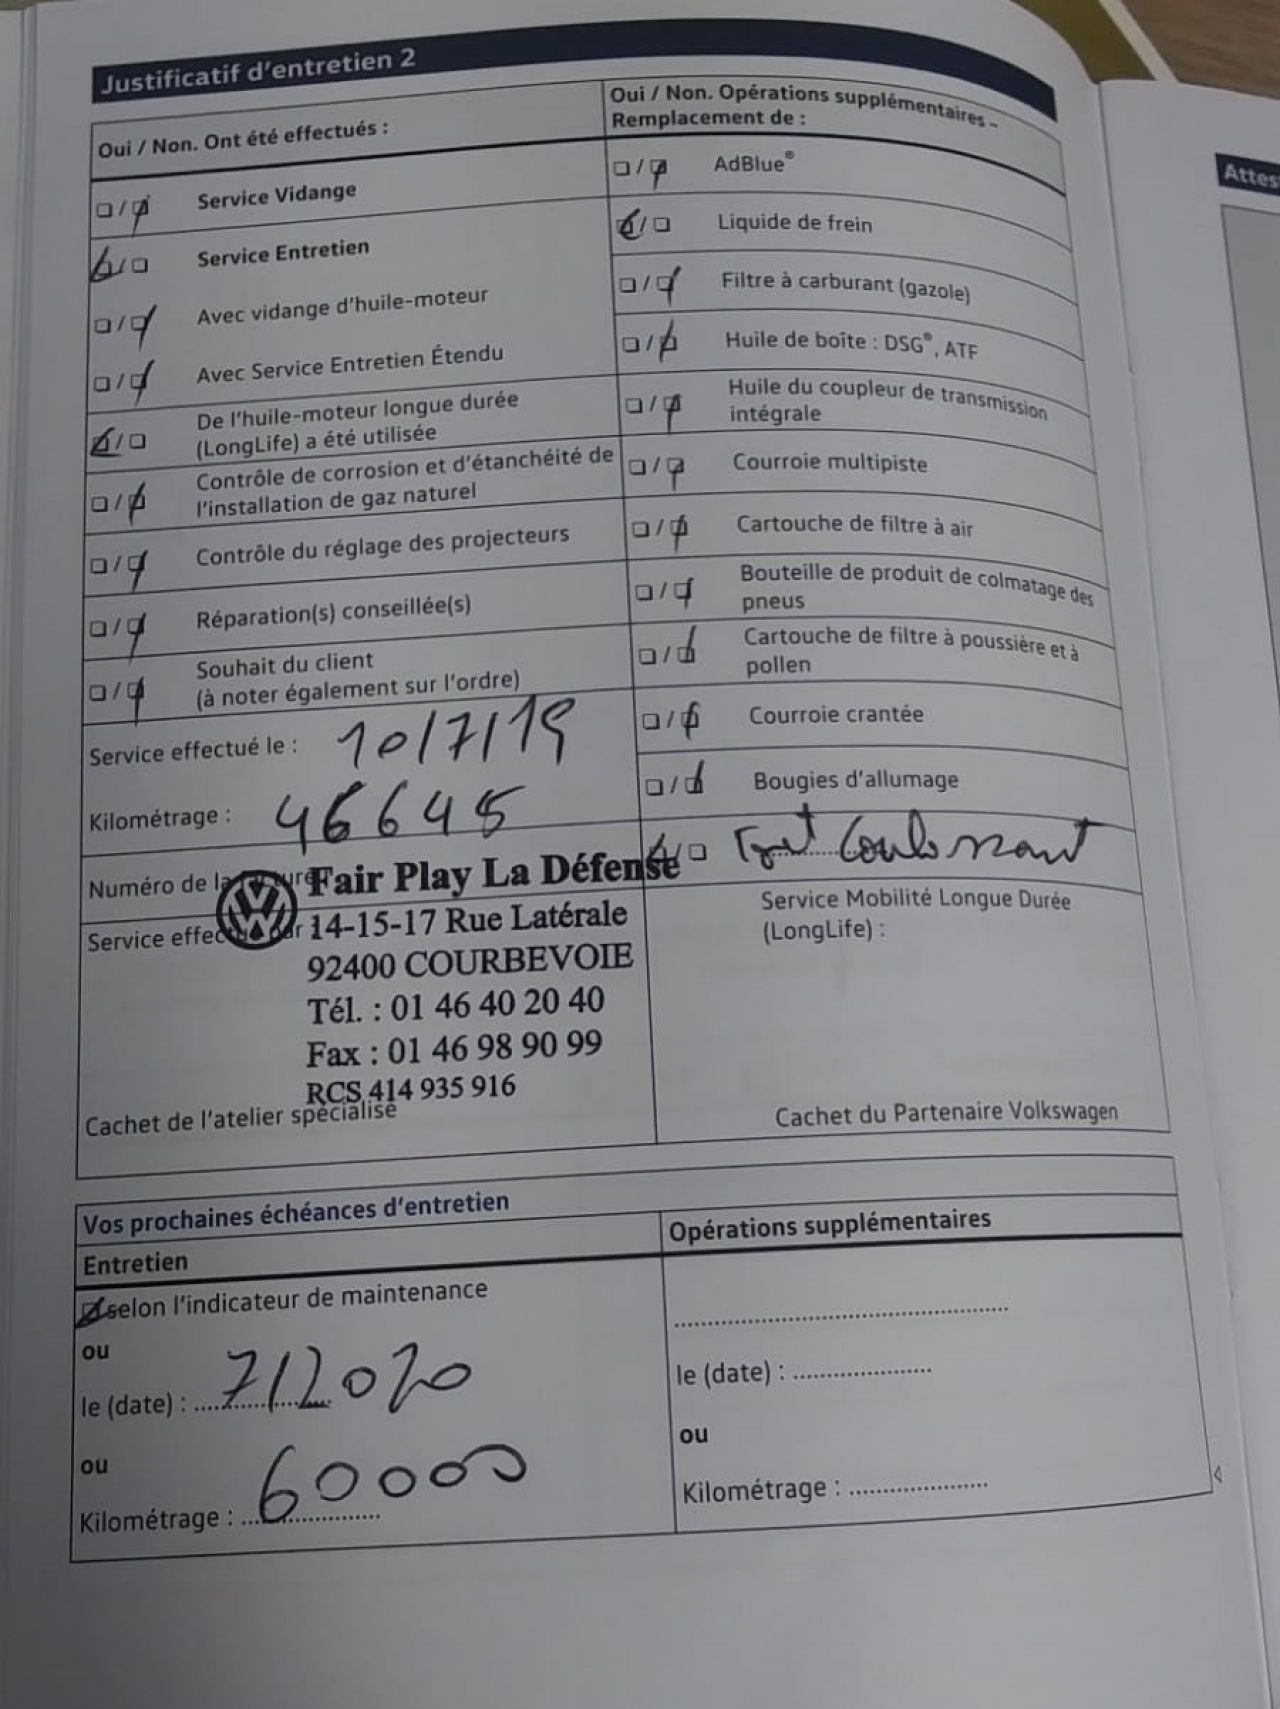 Justificatif d'entretien 2
Oui / Non. Ont été effectués :
Service Vidange
Service Entretien
Avec vidange d'huile-moteur
Avec Service Entretien Étendu
De l'huile-moteur longue durée
(LongLife) a été utilisée
Contrôle de corrosion et d'étanchéité de
l'installation de gaz naturel
Contrôle du réglage des projecteurs
Réparation(s) conseillée(s)
Souhait du client
(à noter également sur l'ordre)
Service effectué le : 10/7/19
Kilométrage : 46645
Numéro de la
Service effectué par :
Fair Play La Défense
14-15-17 Rue Latérale
92400 COURBEVOIE
Tél. : 01 46 40 20 40
Fax : 01 46 98 90 99
RCS 414 935 916
Cachet de l'atelier spécialisé
Oui / Non. Opérations supplémentaires –
Remplacement de :
AdBlue®
Liquide de frein
Filtre à carburant (gazole)
Huile de boîte : DSG®, ATF
Huile du coupleur de transmission
intégrale
Courroie multipiste
Cartouche de filtre à air
Bouteille de produit de colmatage des
pneus
Cartouche de filtre à poussière et à
pollen
Courroie crantée
Bougies d'allumage
Toit Coulissant
Service Mobilité Longue Durée
(LongLife) :
Cachet du Partenaire Volkswagen
Vos prochaines échéances d'entretien
Entretien
selon l'indicateur de maintenance
ou
le (date) : 7/2020
ou
Kilométrage : 60000
Opérations supplémentaires
le (date) :
ou
Kilométrage :
Attes